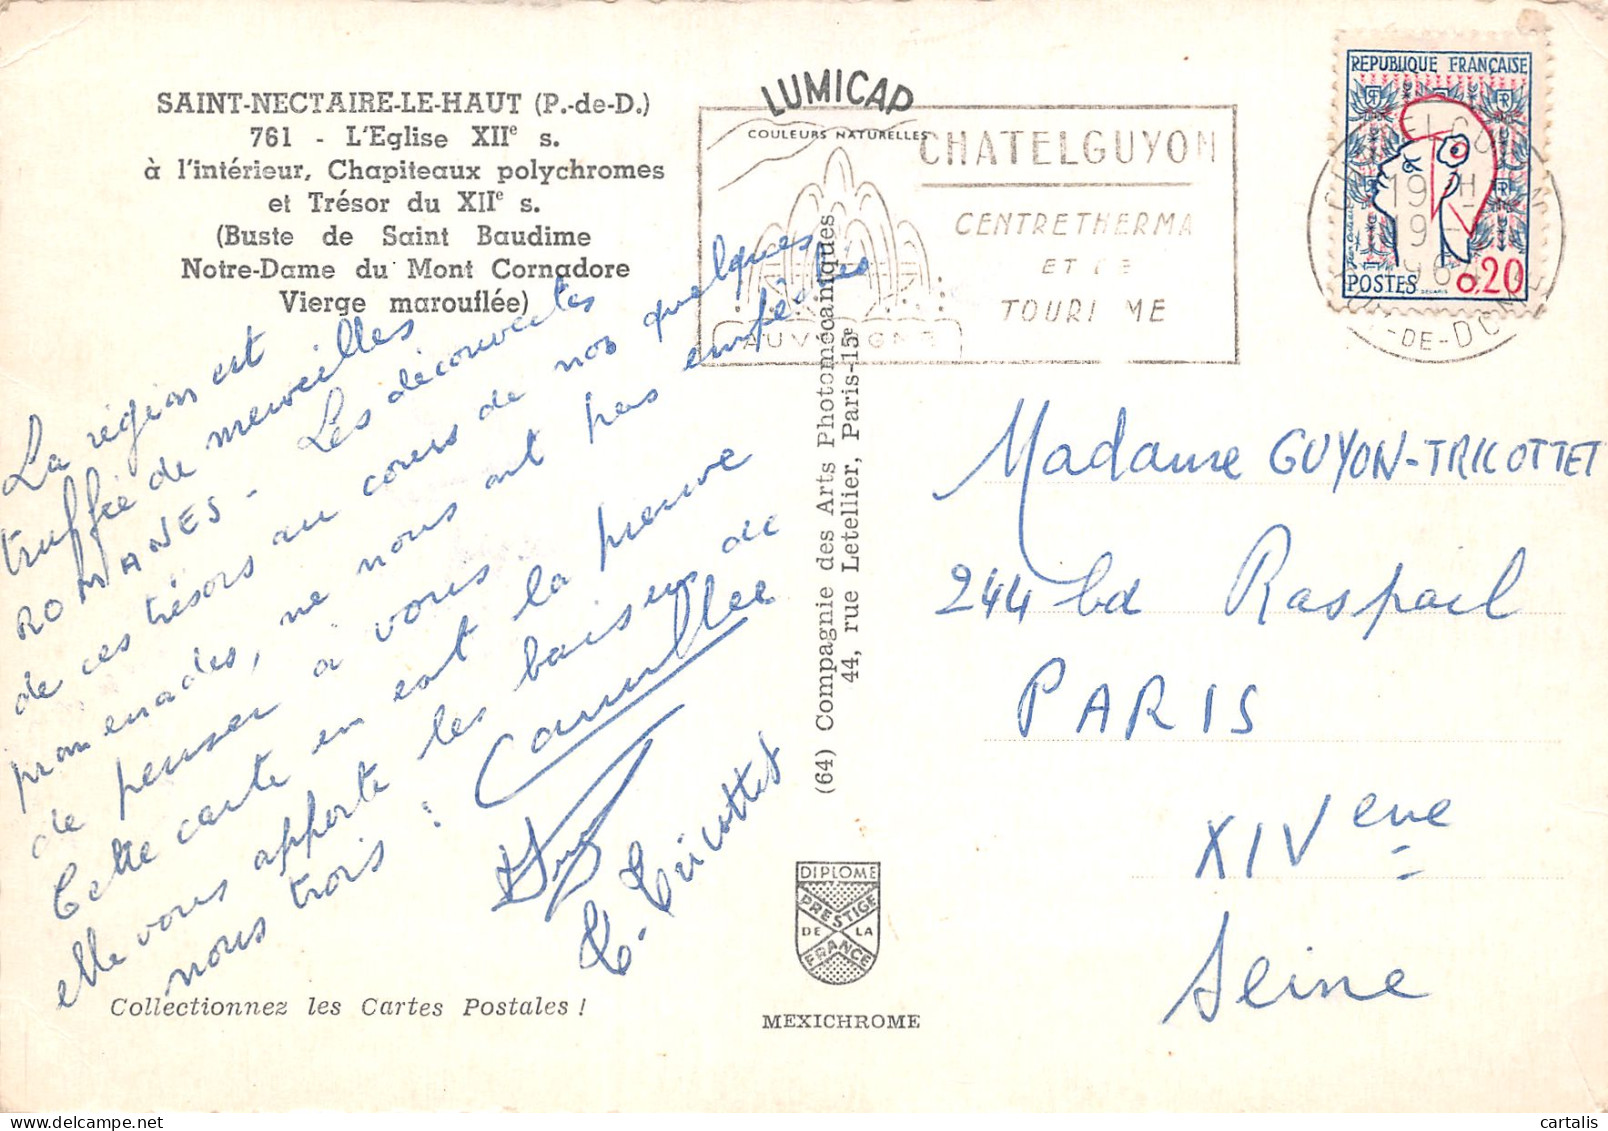 SAINT-NECTAIRE-LE-HAUT (P.-de-D.)
761 - L'Eglise XIIe s.
à l'intérieur, Chapiteaux polychromes
et Trésor du XIIe s.
(Buste de Saint Baudime
Notre-Dame du Mont Cornadore
Vierge marouflée)
La région est
truffée de merveilles
ROMANES - Les découvertes
de ces trésors au cours de nos quelques
promenades, ne nous ont pas empêchés
de penser à vous.
Cette carte en est la preuve
elle vous apporte les baisers de
nous trois : Camille
T. Tricottet
Collectionnez les Cartes Postales !
LUMICAP
COULEURS NATURELLES
CHATELGUYON
CENTRETHERMA
ET DE
TOURI ME
AUVERGNE
(64) Compagnie des Arts Photomécaniques
44, rue Letellier, Paris-15e
DIPLOME
PRESTIGE
DE LA
FRANCE
MEXICHROME
REPUBLIQUE FRANÇAISE
RF
RF
POSTES
0,20
19 H
DE-DOME
Madame GUYON-TRICOTTET
244 bd Raspail
PARIS
XIVeme
Seine
cartalis
delcampe.net